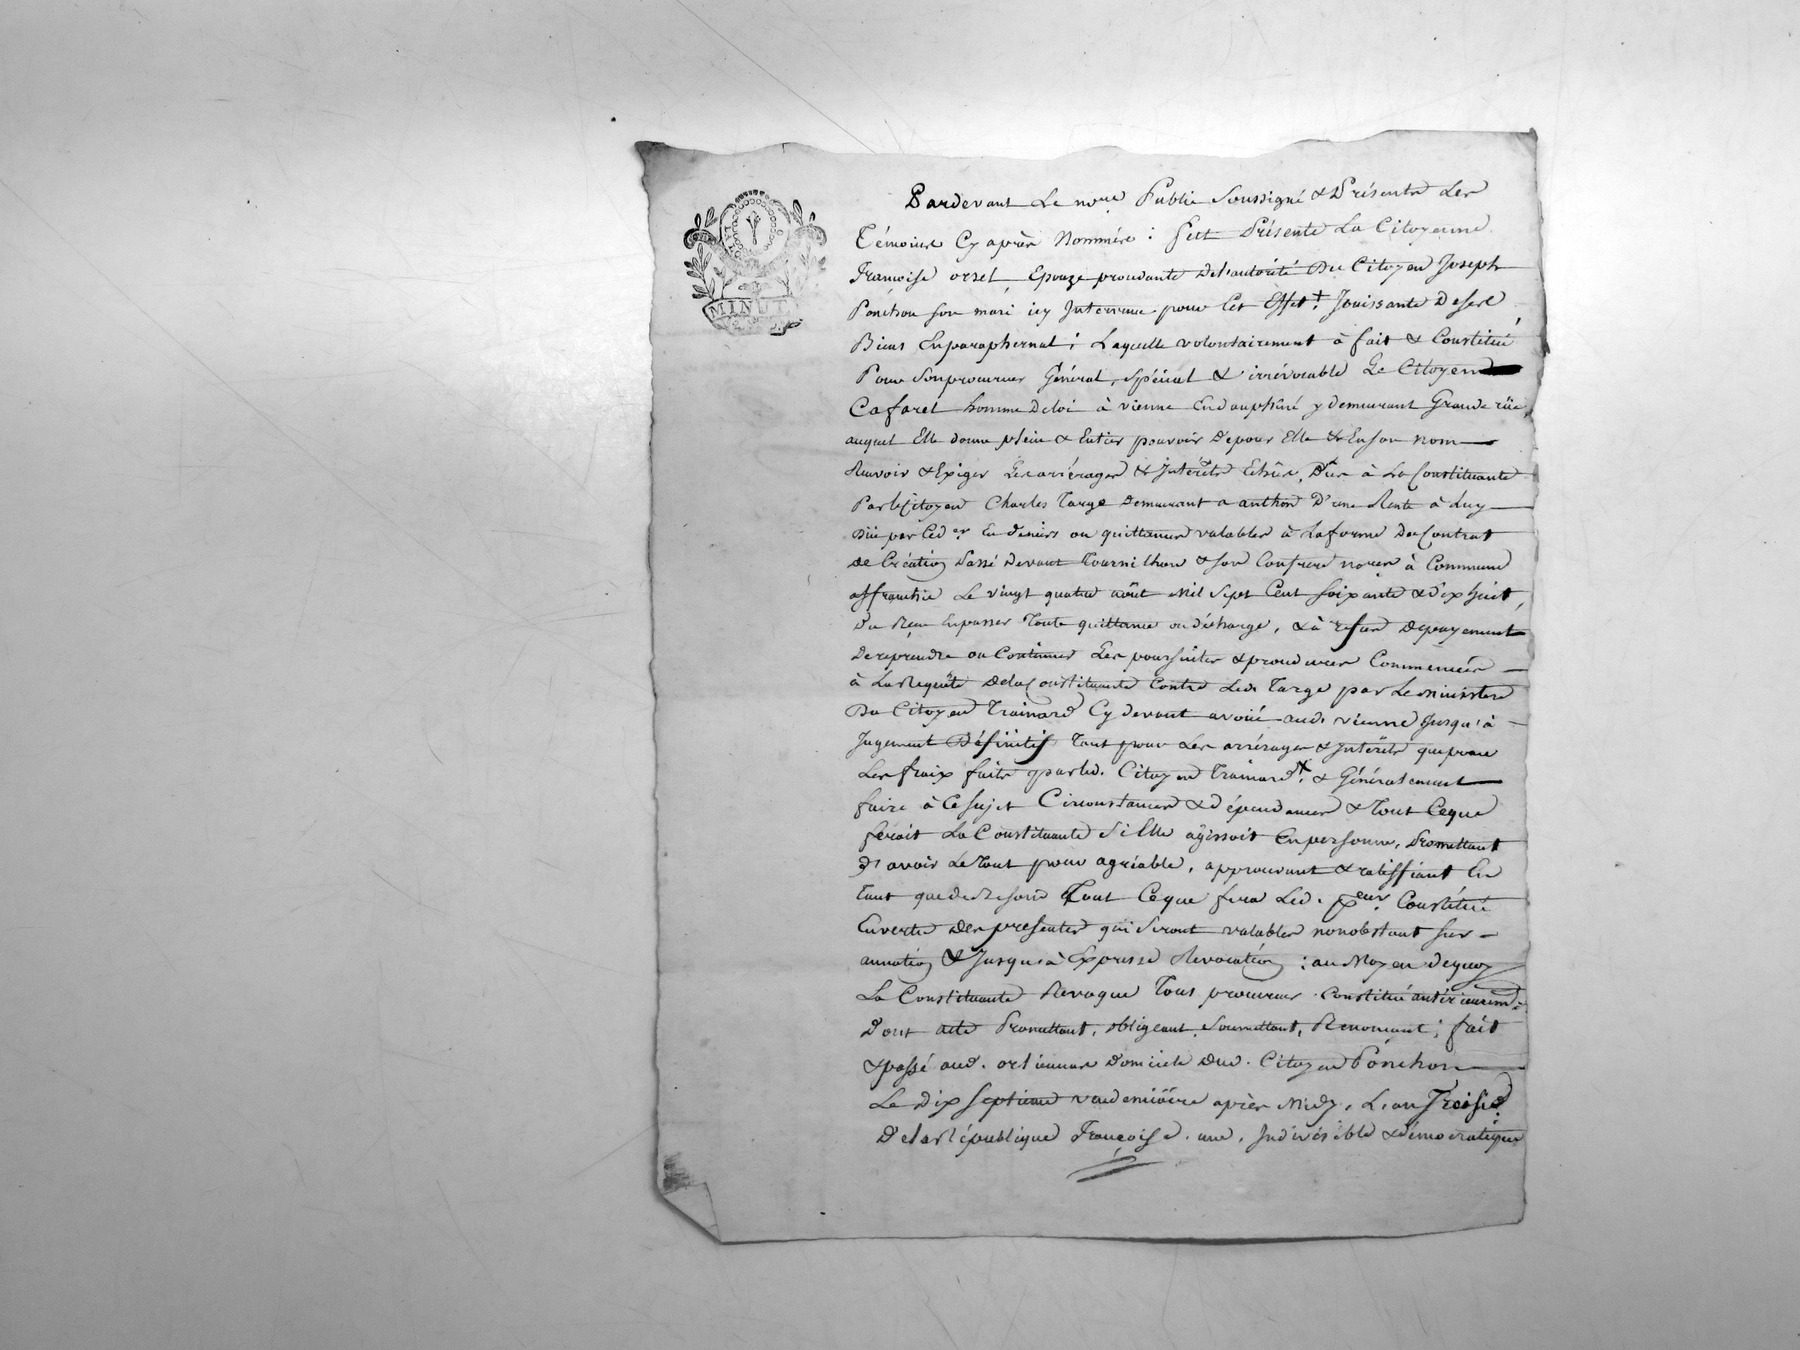 MINUT
Pardevant Le nore Public Soussigné & Présents Les
Témoins Cy après Nommés : fut Présente La Citoyenne
Francoise orsel Epouze procedante de l'autorité Du Citoyen Joseph
Ponchon son mari icy Intervenu pour Cet Effet + Jouissante De ses
Biens En paraphernal ; Laquelle volontairement à fait & Constitué
Pour Son procureur Général, Spécial & irrévocable Le Citoyen
Cafarel homme de loi à vienne En dauphiné y demeurant Grande rüe,
auquel Elle donne plein & Entier pouvoir De pour Elle & En son nom
Recevoir & Exiger Les arrérages & Intérêts Echus, Dus à La Constituante
Par le Citoyen Charles Targe Demeurant a anthon D'une Rente à Luy
Düe par Led er. En deniers ou quittances valables à La forme Du Contrat
de Création Passé Devant Tournilhon & son Confrere nores à Commune
affranchie Le vingt quatre août Mil Sept Cent soixante & dix huit,
Du Reçu En passer Toute quittance ou décharge, & à refus De payement
De reprendre ou Continuer Les poursuites & procedures Commencées
à La Requête De la Constituante Contre Led. Targe par Le ministere
Du Citoyen Trainard Cy devant avoüé aud. vienne Jusqu'à
Jugement Définitif Tant pour Les arrérages & Intérêts que pour
Les fraix faits par led. Citoyen Trainard + & Généralement
faire à Ce Sujet Circonstances & dépendances & Tout Ce que
feroit La Constituante Si Elle agissoit En personne, Promettant
D'avoir Le Tout pour agréable, approuvant & ratiffiant En
Tant que de Besoin Tout Ce que fera Led. peur Constitué
En vertu Des presentes qui Seront valables nonobstant sur-
annation & Jusqu'à Expresse Revocation : au Moyen de quoy
La Constituante Revoque Tous procureurs Constitués antérieuremt
Dont acte Promettant, obligeant, Soumettant, Renonçant ; fait
& passé aud. Domicile Dud. Citoyen Ponchon
Le Dix Septieme vendemiaire après Midy, L'an Troisie
De la République Françoise. une, Indivisible & démocratique